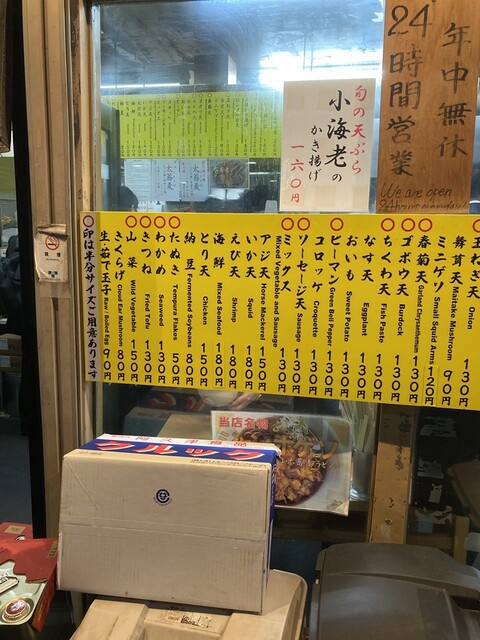 年中無休
24時間営業
We are open
24hours everyday!
旬の天ぷら
小海老の
かき揚げ
一六〇円
玉ねぎ天 Onion 130円
舞茸天 Maitake Mushroom 90円
ミニゲソ Small Squid Arms 120円
〇春菊天 Garland Chrysanthemum 130円
〇ゴボウ天 Burdock 130円
〇ちくわ天 Fish Paste 130円
なす天 Eggplant 130円
おいも Sweet Potato 130円
〇ピーマン Green Bell Pepper 130円
コロッケ Croquette 130円
〇ソーセージ天 Sausage 130円
〇ミックス Mixed Vegetable and Sausage 130円
アジ天 Horse Mackerel 150円
いか天 Squid 180円
えび天 Shrimp 180円
海鮮 Mixed Seafood 180円
とり天 Chicken 150円
納豆 Fermented Soybeans 80円
〇たぬき Tempura Flakes 50円
〇わかめ Seaweed 130円
〇きつね Fried Tofu 130円
〇山菜 Wild Vegetable 150円
きくらげ Cloud Ear Mushroom 90円
生・茹で玉子 Raw / Boiled Egg 90円
〇印は半分サイズご用意あります
当店名物
フルック